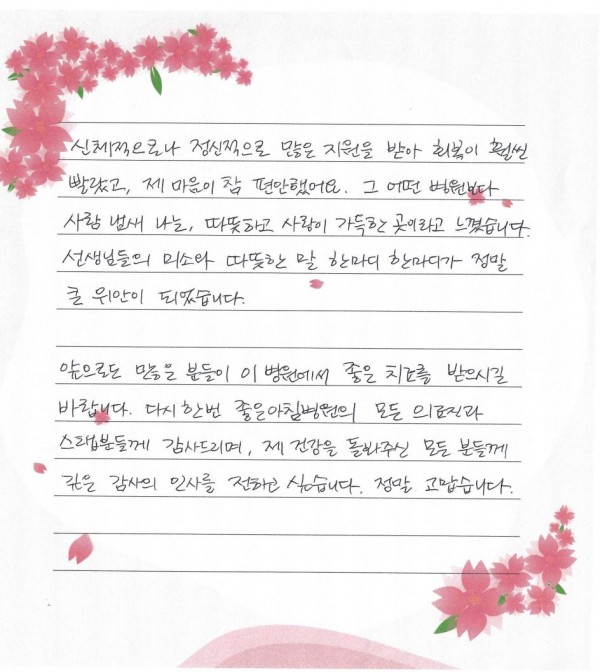 신체적으로나 정신적으로 많은 지원을 받아 회복이 훨씬
빨랐고, 제 마음이 참 편안했어요. 그 어떤 병원보다
사람 냄새 나는, 따뜻하고 사랑이 가득한 곳이라고 느꼈습니다.
선생님들의 미소와 따뜻한 말 한마디 한마디가 정말
큰 위안이 되었습니다.
앞으로도 많은 분들이 이 병원에서 좋은 치료를 받으시길
바랍니다. 다시 한번 좋은아침병원의 모든 의료진과
스탭분들께 감사드리며, 제 건강을 돌봐주신 모든 분들께
깊은 감사의 인사를 전하고 싶습니다. 정말 고맙습니다.